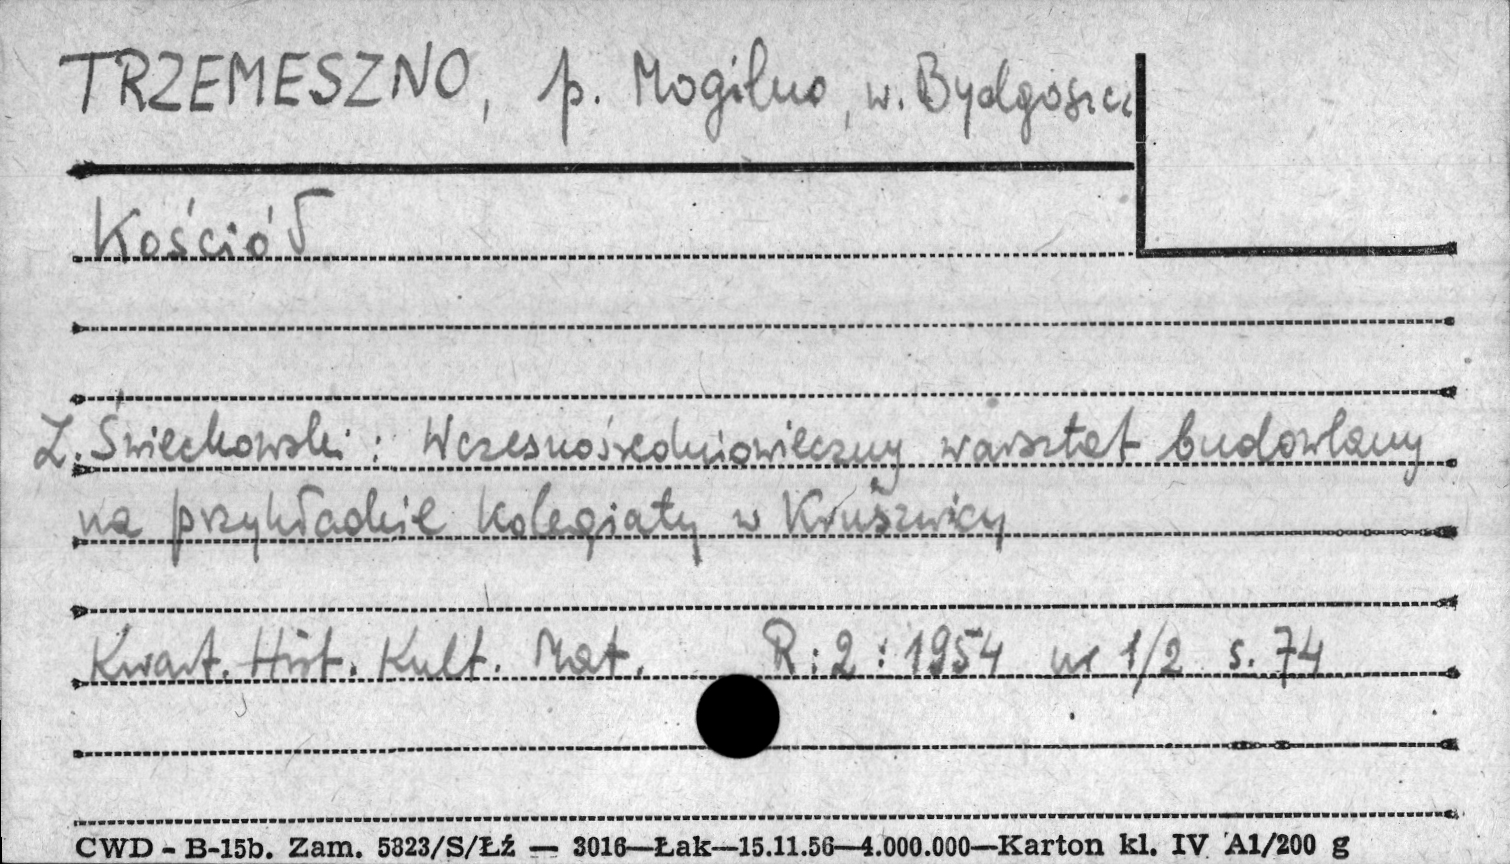 TRZEMESZNO, p. Mogilno, w. Bydgoszcz
Kościół
Z. Świechowski: Wczesnośredniowieczny warsztat budowlany
na przykładzie kolegiaty w Kruszwicy
Kwart. Hist. Kult. Mat. R: 2: 1954 nr 1/2 s. 74
CWD - B-15b. Zam. 5823/S/Łź — 3016—Łak—15.11.56—4.000.000—Karton kl. IV A1/200 g